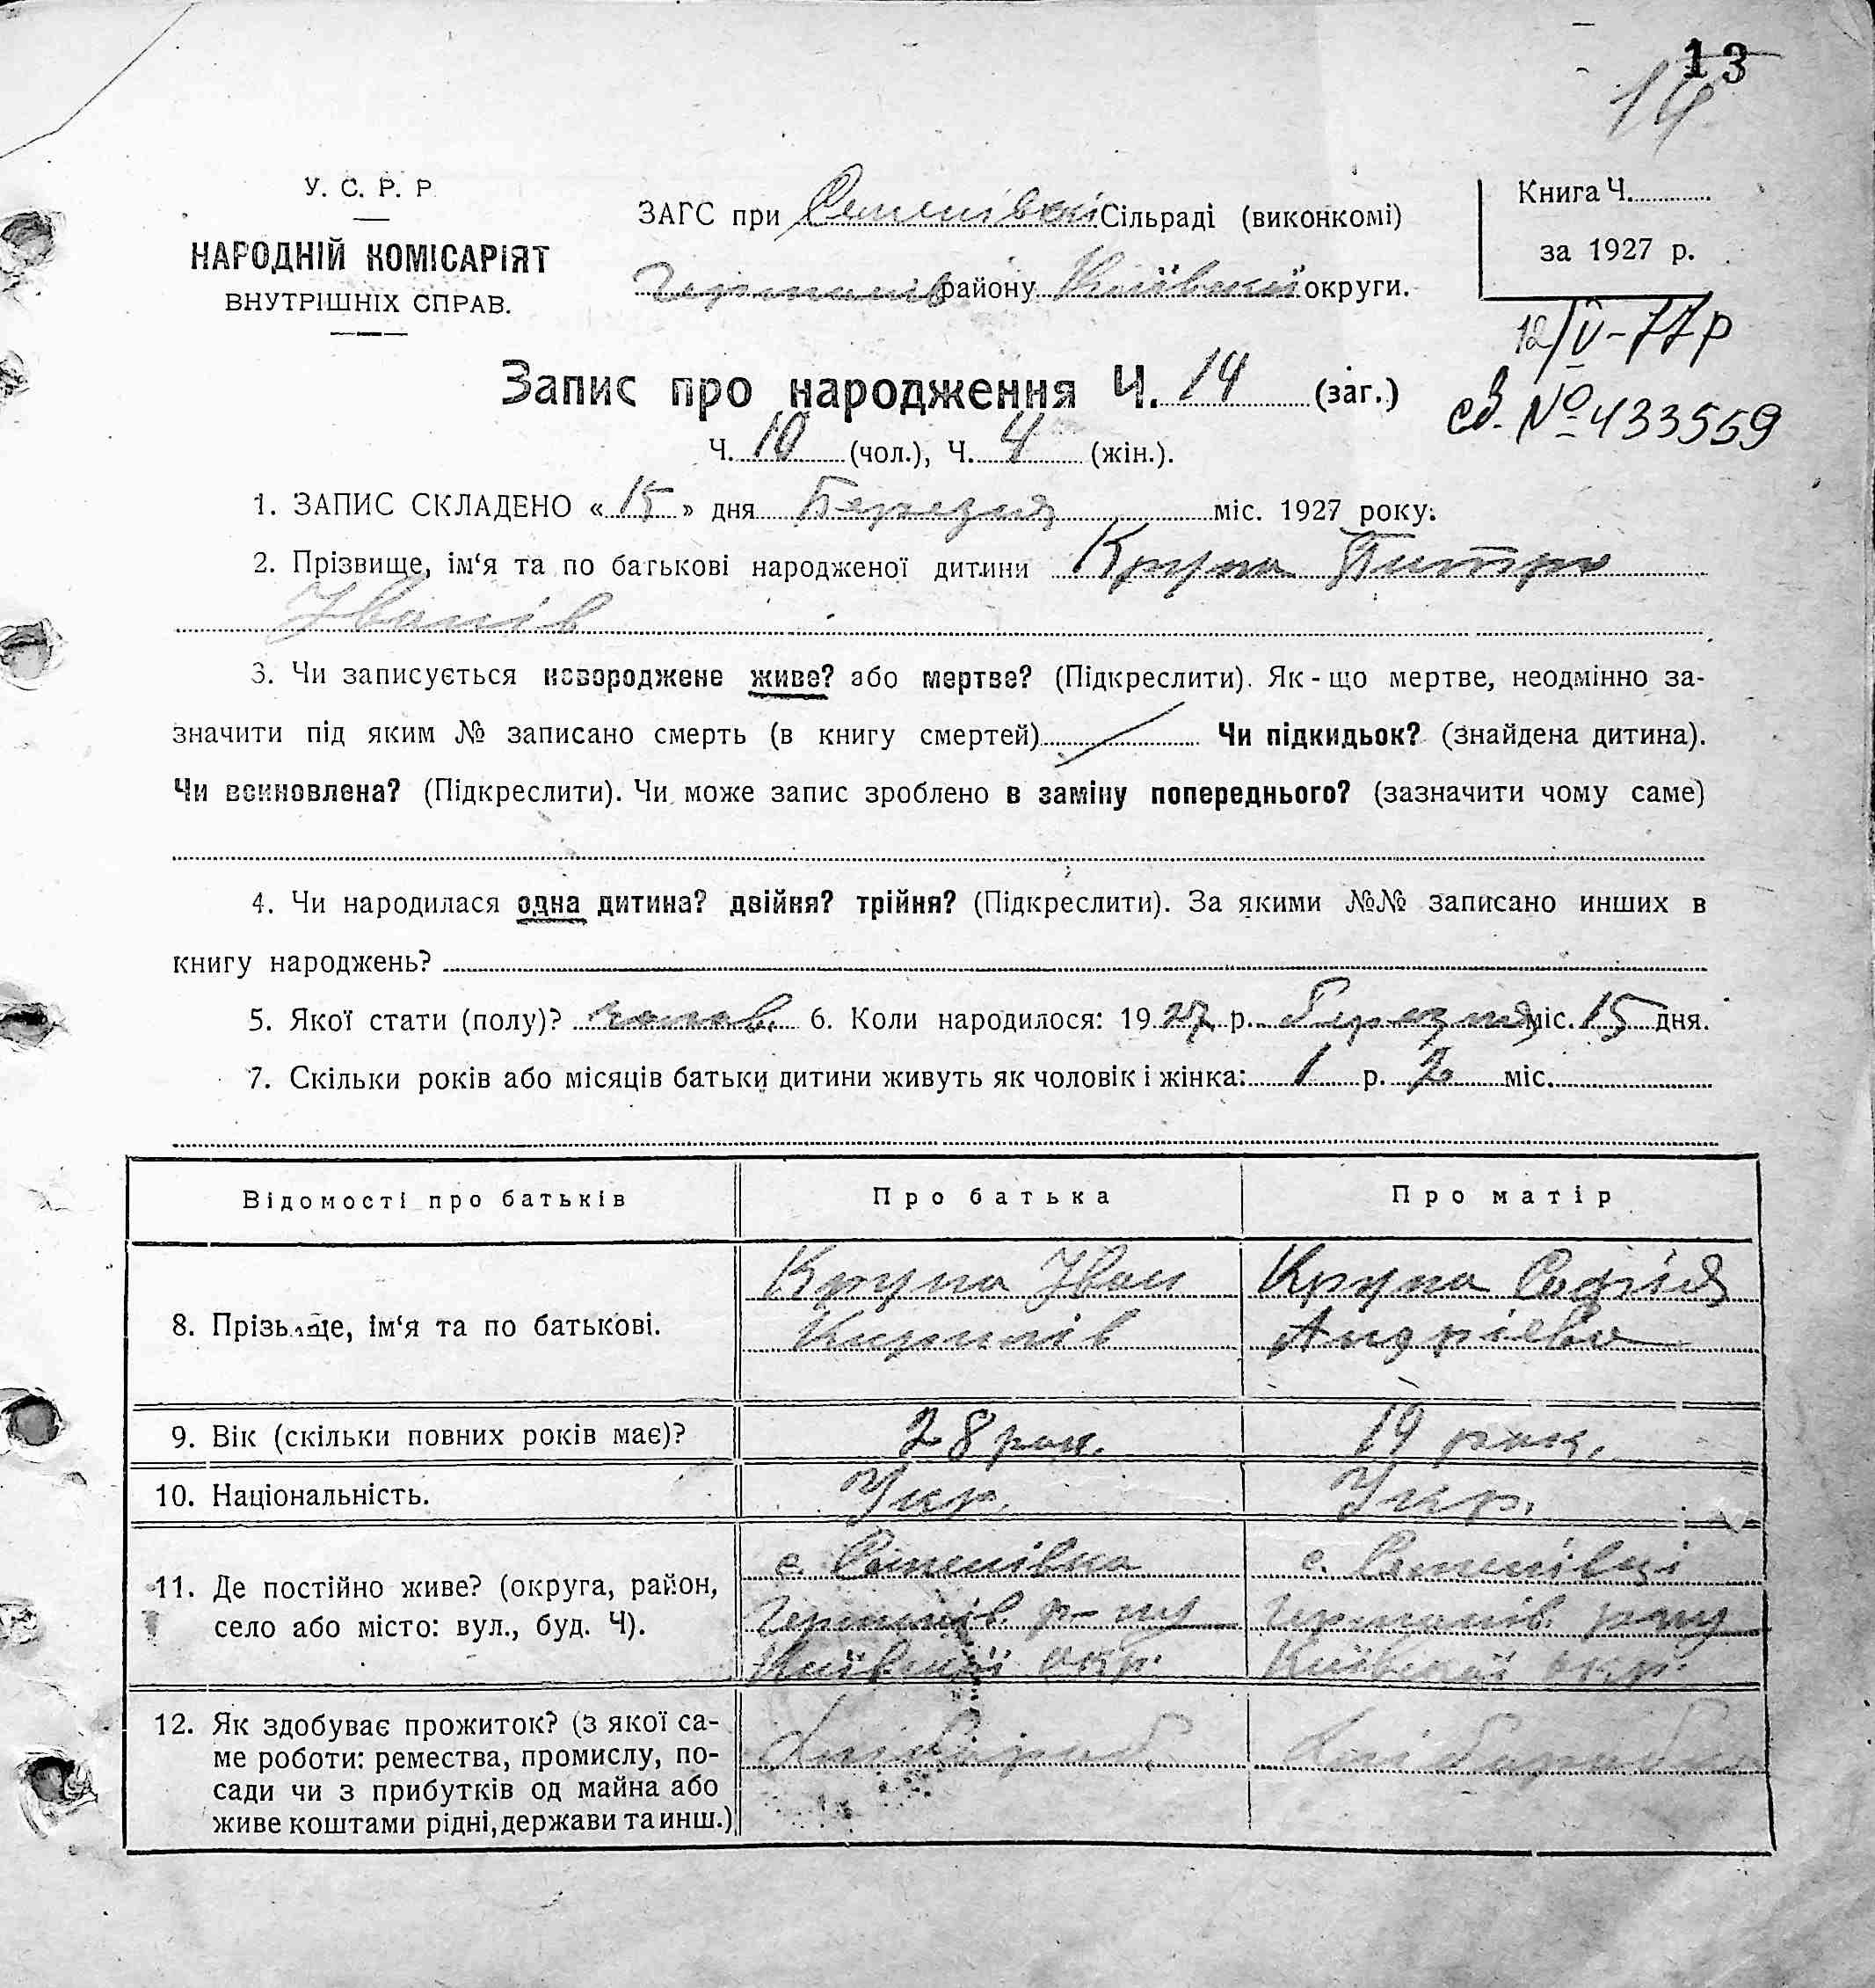 13
14
У. С. Р. Р
НАРОДНІЙ КОМІСАРІЯТ
ВНУТРІШНІХ СПРАВ.
ЗАГС при Семенівскі Сільраді (виконкомі)
Германів району Київської округи.
Книга Ч.
за 1927 р.
12/IV-77р
св. № 433559
Запис про народження Ч. 14 (заг.)
Ч. 10 (чол.), Ч. 4 (жін.).
1. ЗАПИС СКЛАДЕНО « 15 » дня Березня міс. 1927 року.
2. Прізвище, ім'я та по батькові народженої дитини Крупа Питро
Іванів
3. Чи записується новороджене живе? або мертве? (Підкреслити). Як-що мертве, неодмінно за-
значити під яким № записано смерть (в книгу смертей) Чи підкидьок? (знайдена дитина).
Чи всиновлена? (Підкреслити). Чи може запис зроблено в заміну попереднього? (зазначити чому саме)
4. Чи народилася одна дитина? двійня? трійня? (Підкреслити). За якими №№ записано инших в
книгу народжень?
5. Якої стати (полу)? чолов. 6. Коли народилося: 1927 р. березня міс. 15 дня.
7. Скільки років або місяців батьки дитини живуть як чоловік і жінка: 1 р. 2 міс.
Відомості про батьків Про батька Про матір
8. Прізвище, ім'я та по батькові.
Крупа Іван
Кирилів
Крупа Софія
Андрієва
9. Вік (скільки повних років має)? 28 рок. 19 рок.
10. Національність. Укр. Укр.
11. Де постійно живе? (округа, район,
село або місто: вул., буд. Ч).
с. Семенівка
Германів. р-ну
Київської окр.
с. Семенівці
Германів. рну
Київської окр.
12. Як здобуває прожиток? (з якої са-
ме роботи: ремества, промислу, по-
сади чи з прибутків од майна або
живе коштами рідні, держави та инш.)
Хлібороб.
Хлібороб